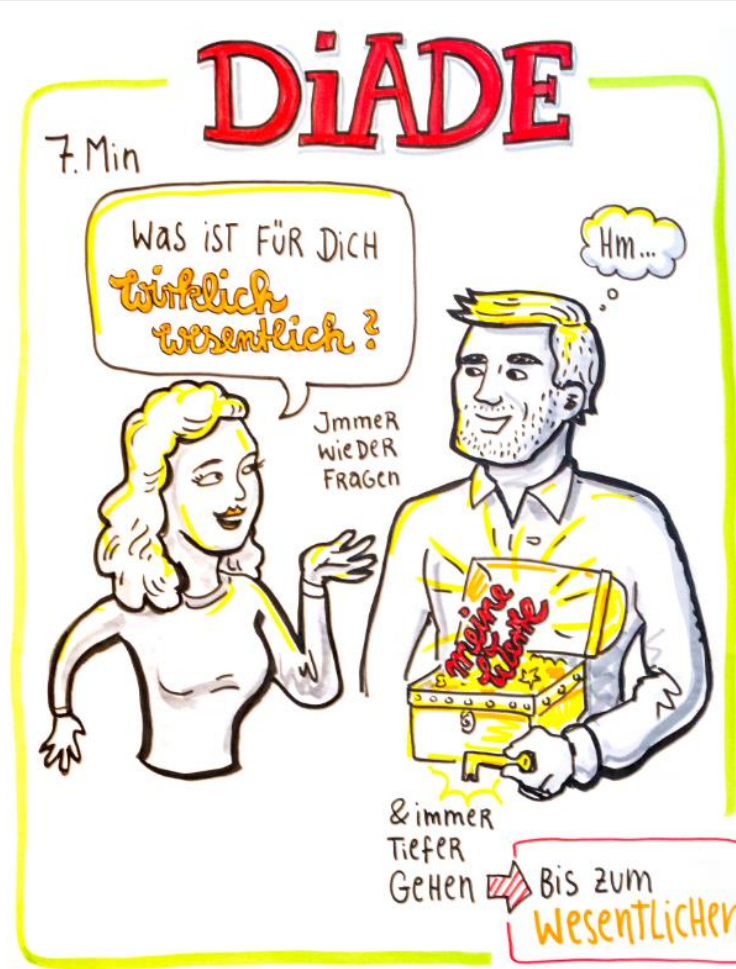 DiADE
7. Min
Was iST FÜR DiCH
wirklich
wesentlich?
Hm...
Immer
WieDER
FRAGEN
meine
Werte
& immer
TieFeR
GeHen
Bis zum
WesentlicHen